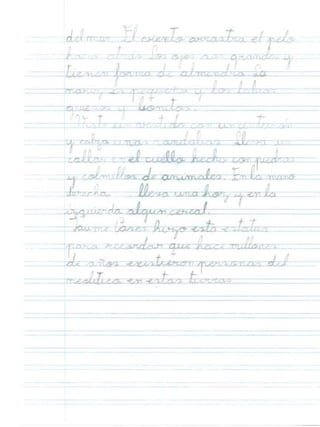 del mar. El viento arrastra el pelo
hacia atrás. Los ojos son grandes y
tienen forma de almendra. La
nariz es pequeña y los labios
gruesos y bonitos.
Viste un vestido con un cinturón
y calza unas sandalias. Lleva un
collar en el cuello hecho con piedras
y colmillos de animales. En la mano
derecha lleva una hoz y en la
izquierda algun cereal.
Jaume Cases hizo esta estatua
para recordar que hace millones
de años existieron personas del
neolítico en estas tierras.